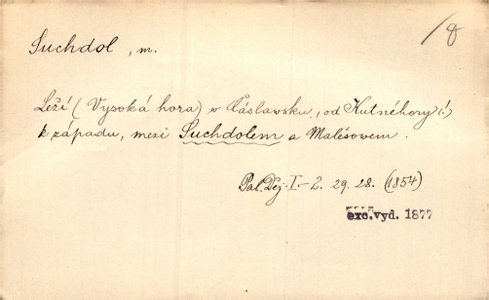 Suchdol, m.
/8
Leží (Vysoká hora) w Čáslawsku, od Kutnéhory (!)
k západu, mezi Suchdolem a Malešowem.
Pal. Děj. I.-2. 29. 28. (1854)
exc. vyd. 1877